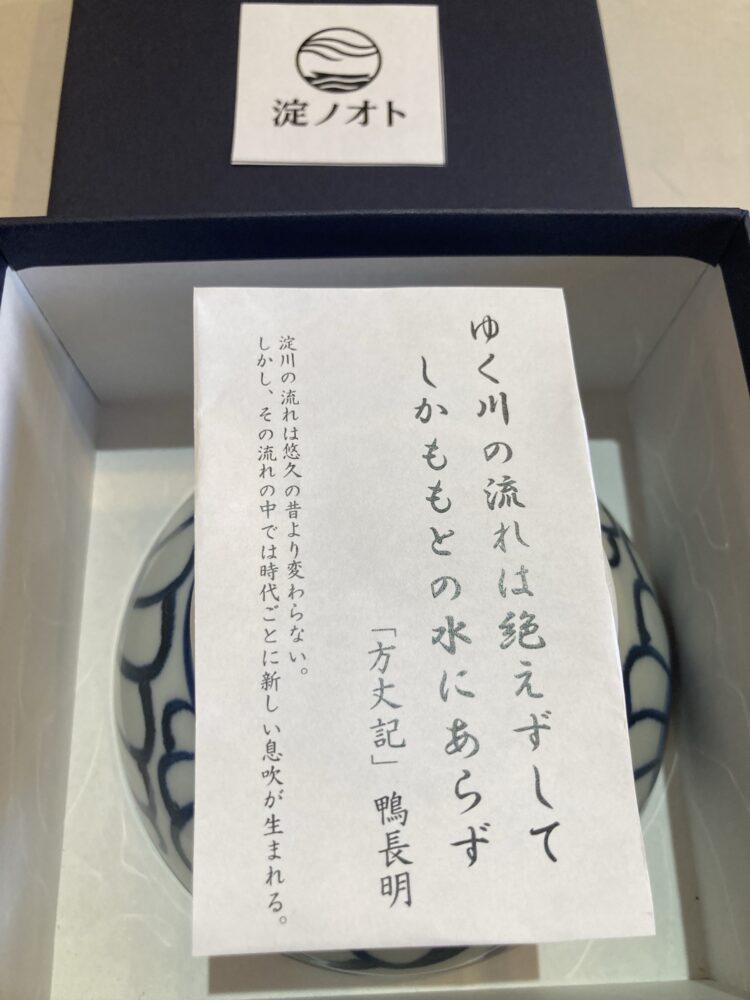 淀ノオト
ゆく川の流れは絶えずして
しかももとの水にあらず
「方丈記」 鴨長明
淀川の流れは悠久の昔より変わらない。
しかし、その流れの中では時代ごとに新しい息吹が生まれる。